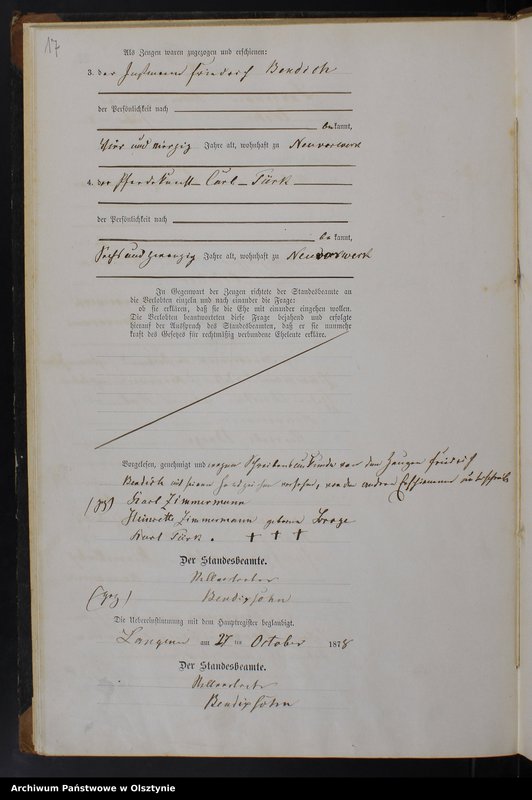 17
Als Zeugen waren zugezogen und erschienen:
3. der Instmann Friedrich Bendich
der Persönlichkeit nach
bekannt,
vier und vierzig Jahre alt, wohnhaft zu Neuvorwerk
4. der Pferdeknecht Carl Türk
der Persönlichkeit nach
bekannt,
sechs und zwanzig Jahre alt, wohnhaft zu Neuvorwerk
In Gegenwart der Zeugen richtete der Standesbeamte an
die Verlobten einzeln und nach einander die Frage:
ob sie erklären, daß sie die Ehe mit einander eingehen wollen.
Die Verlobten beantworteten diese Frage bejahend und erfolgte
hierauf der Ausspruch des Standesbeamten, daß er sie nunmehr
kraft des Gesetzes für rechtmäßig verbundene Eheleute erkläre.
Vorgelesen, genehmigt und wegen Schreibensunkunde von dem Zeugen Friedrich
Bendich mit seinem Handzeichen versehen, von den andern Erschienenen unterschrieben
(gz) Karl Zimmermann
Zimmermann geborene
Karl Türk. + + +
Der Standesbeamte.
(gez)
Bendixsohn
Die Uebereinstimmung mit dem Hauptregister beglaubigt.
am 27 ten October 1878
Der Standesbeamte.
Bendixsohn
Archiwum Państwowe w Olsztynie